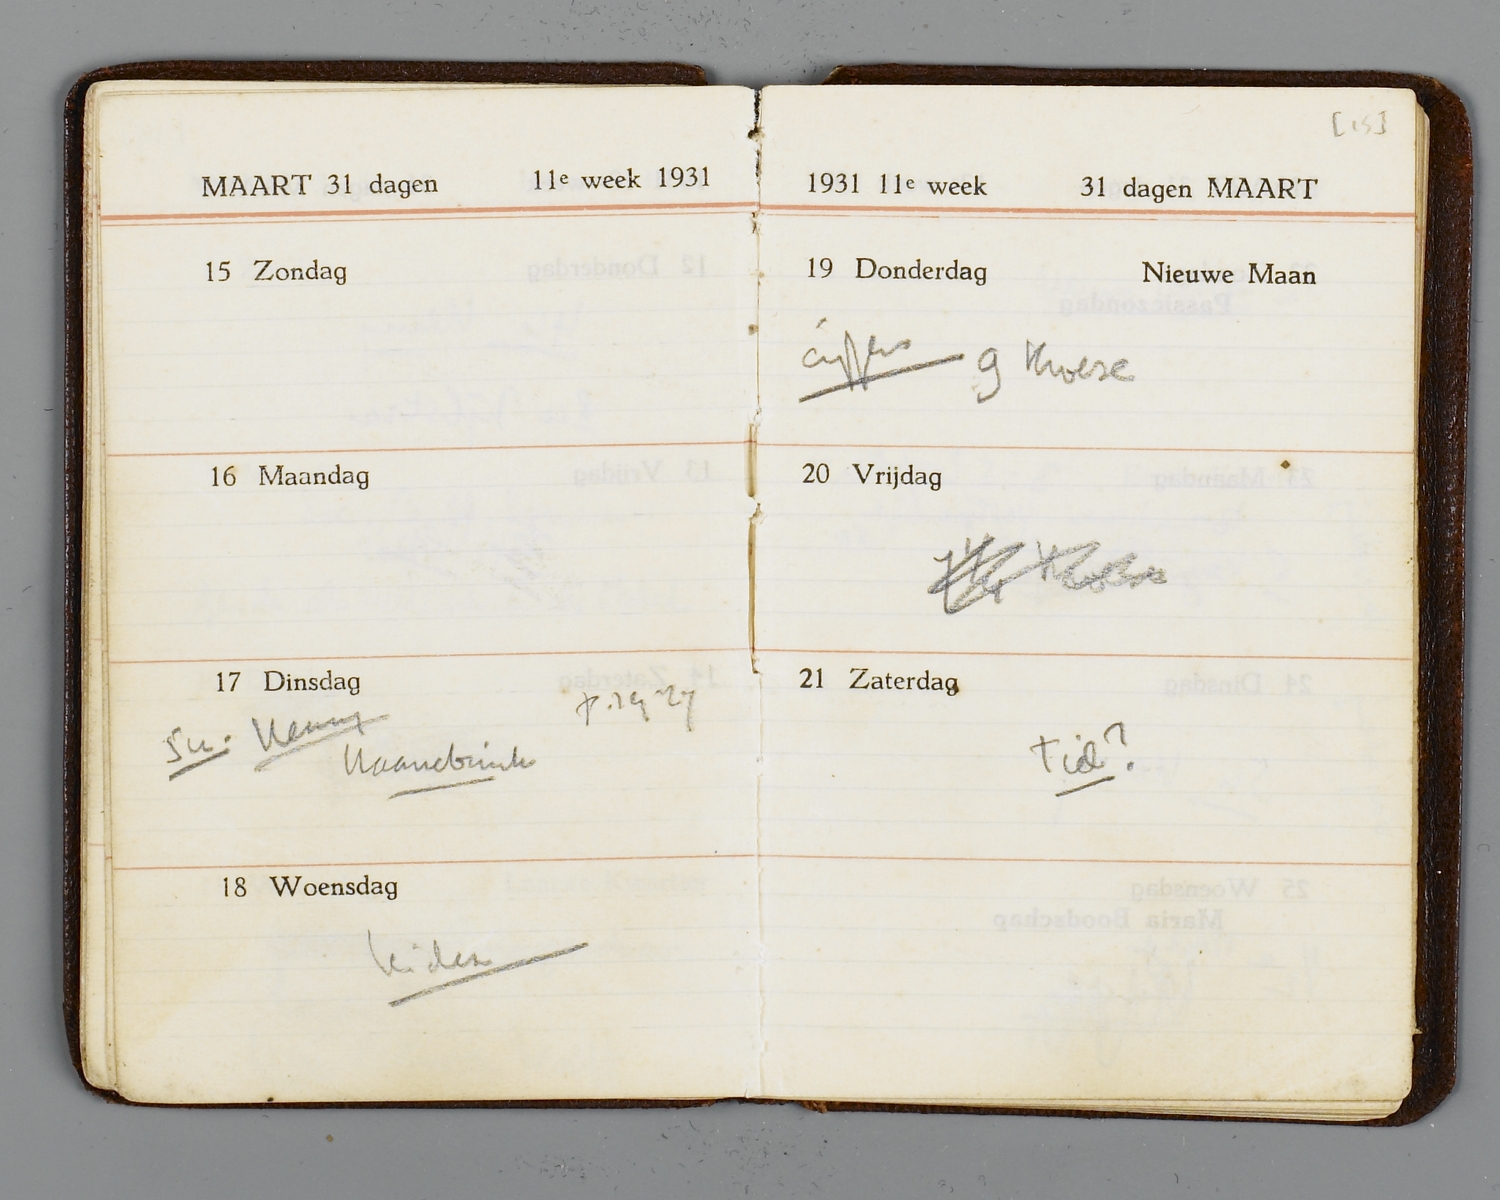 MAART 31 dagen 11e week 1931
15 Zondag
16 Maandag
17 Dinsdag
18 Woensdag
Leiden
[15]
1931 11e week 31 dagen MAART
19 Donderdag Nieuwe Maan
cijfers 9 Kroese
20 Vrijdag
21 Zaterdag
Tid?